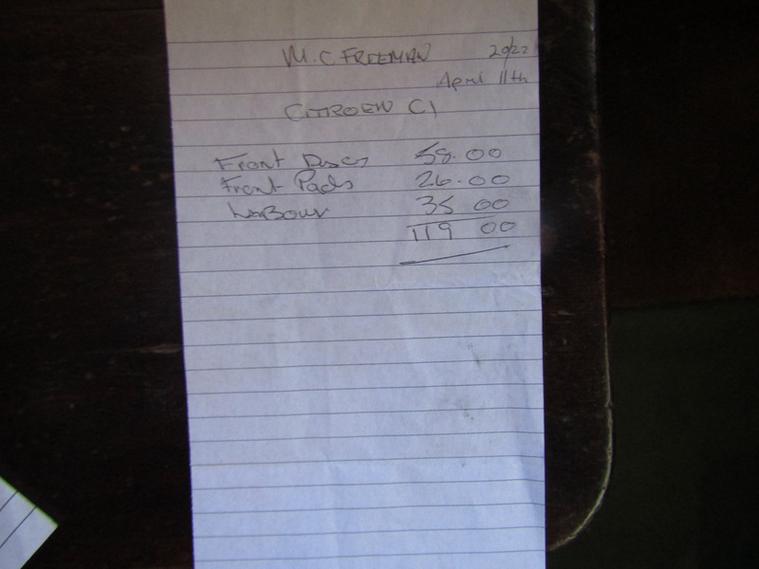 M.C FREEMAN 2022
April 11th
CITROEN C1
Front Discs 58.00
Front Pads 26.00
LABOUR 35 00
119 00